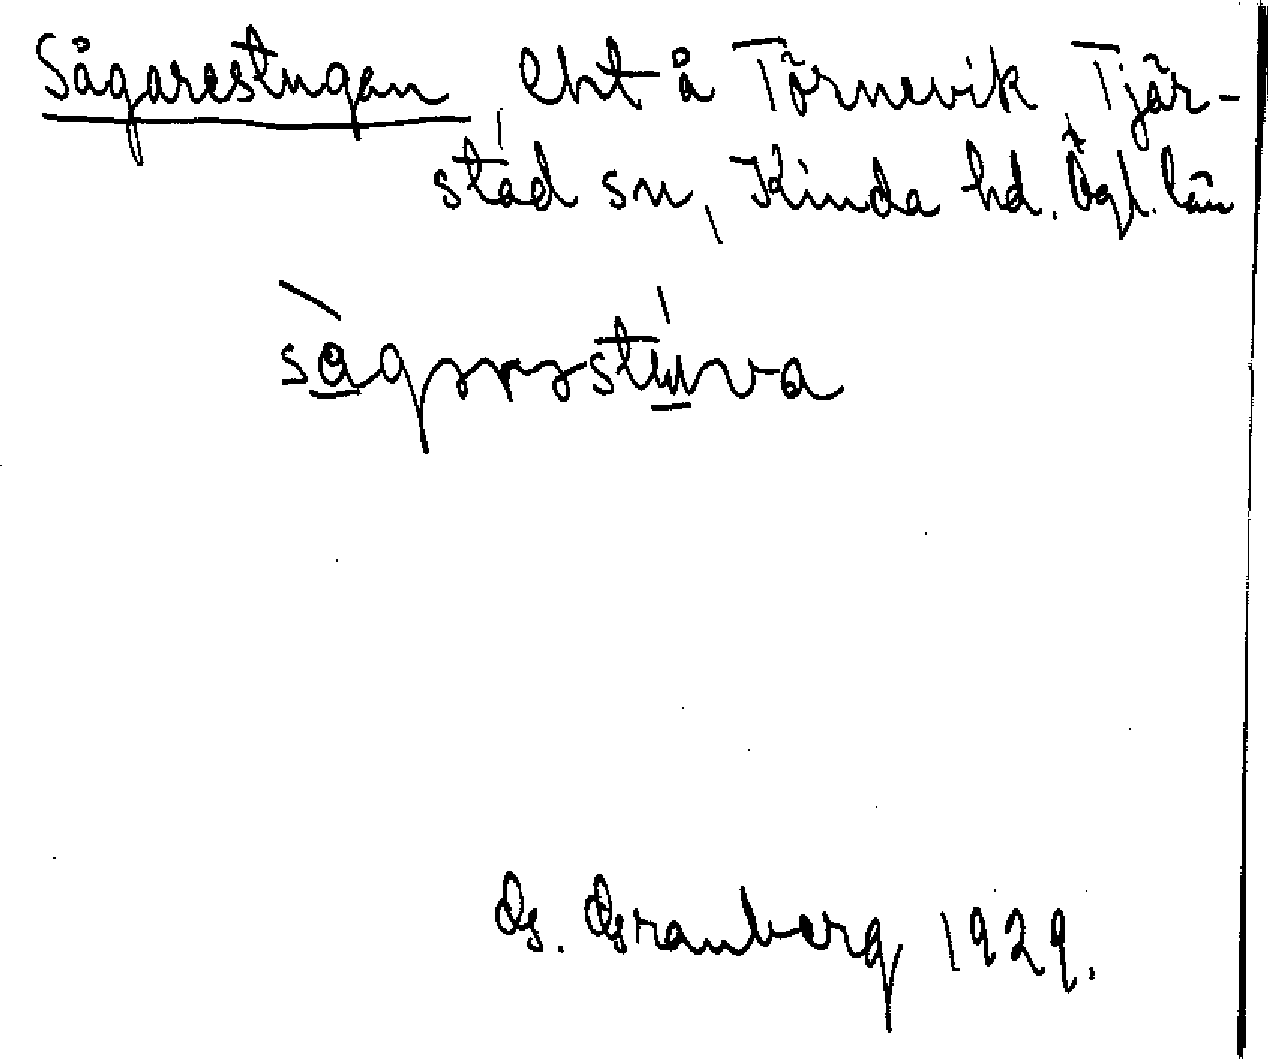 Sågarestugan lht å Törnevik, Tjär-
städ sn, Kinda hd. Ögl. län
G. Granberg 1929.